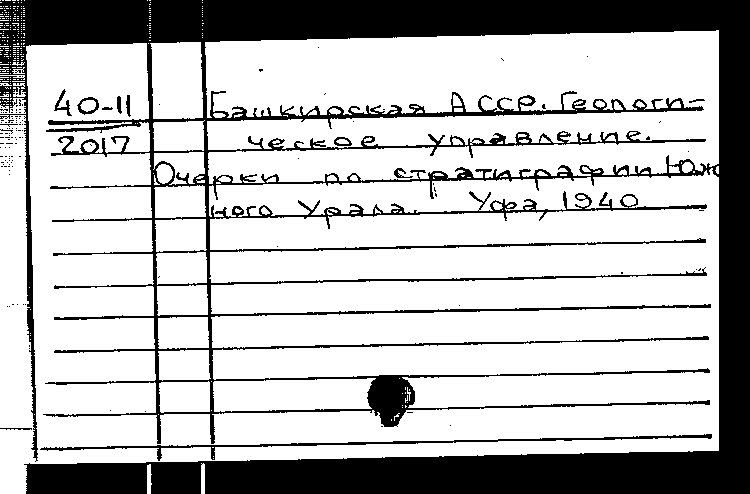 40-11 Башкирская АССР. Геологи-
2017 ческое управление.
Очерки по стратиграфии Юж
ного Урала. Уфа, 1940